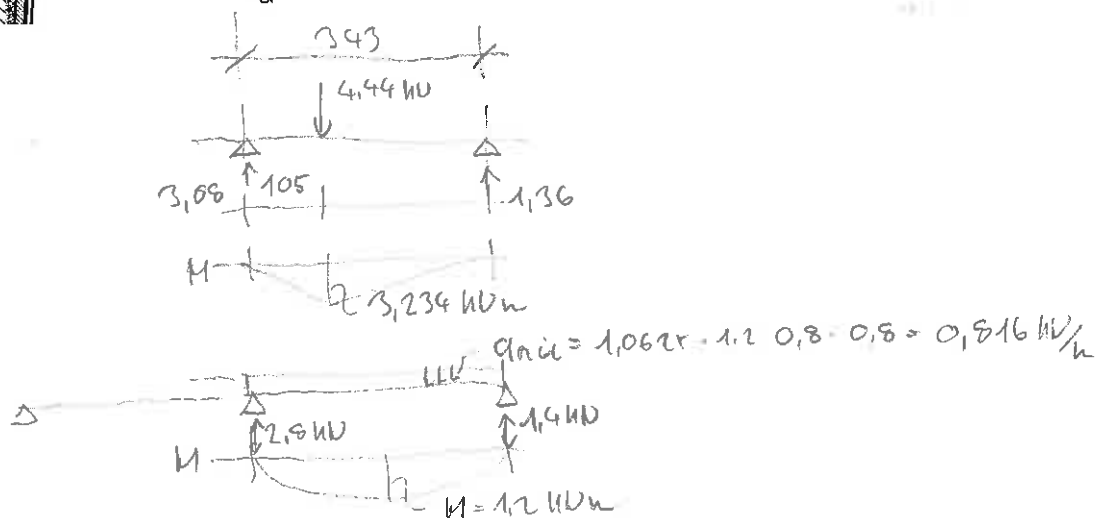 343
4,44 kN
3,08 105 1,36
M
3,234 kNm
= 1,062 · 1.2 0,8 · 0,8 = 0,816 kN/m
2,8 kN 1,4 kN
M
M = 1,2 kNm